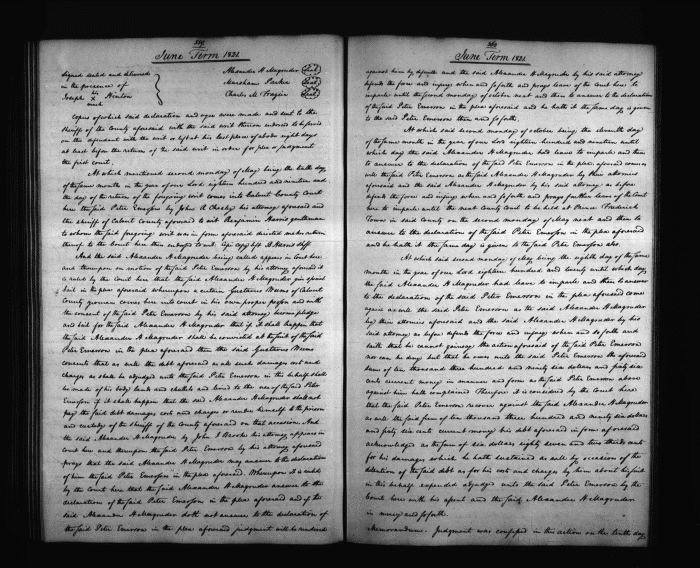 June Term 1821.
Signed sealed and delivered
in the presence of
Joseph his X mark Hinton
Alexander H Magruder (Seal)
Marsham Parker (Seal)
Charles A Frazier (Seal)
Copies of which said declaration and were made and sent to the
Sheriff of the County aforesaid with the said writ thereon endorsed to be served
on the defendant with the writ or left at his last place of abode eight days
at least before the return of the said writ in order for plea or judgment
the first court.
At which mentioned second monday of May being the day
of the same month in the year of our Lord eighteen hundred and nineteen and
the day of the return of the foregoing writ comes into Calvert County Court
here the said Peter Emerson by John his attorney aforesaid and
the sheriff of Calvert County aforesaid to wit Benjamin Harris gentleman
to whom the said foregoing writ was in form aforesaid directed makes return
thereof to the Court here thus endorsed to wit Cepi copy left B Harris Shff
And the said Alexander H Magruder being called appears in Court here
and thereupon on motion of the said Peter Emerson by his attorney aforesaid it
is ruled by the Court here that the said Alexander H Magruder give special
bail in the plea aforesaid whereupon a certain Gustavus Weems of Calvert
County comes here into court in his own proper person and with
the consent of the said Peter Emerson by his said attorney becomes pledge
and bail for the said Alexander H Magruder that if it shall happen that
the said Alexander H Magruder shall be convicted at the suit of the said
Peter Emerson in the plea aforesaid then the said Gustavus Weems
consents that as well the debt aforesaid as all such damages cost and
charges as shall be adjudged unto the said Peter Emerson in this behalf shall
be made of his body lands and chattels and levied to the use of the said Peter
Emerson if it shall happen that the said Alexander H Magruder shall not
pay the said debt damages cost and charges or render himself to the prison
and custody of the sheriff of the County aforesaid on that occasion. And
the said Alexander H Magruder by John J Brooke his attorney appears in
Court here and thereupon the said Peter Emerson by his attorney aforesaid
prays that the said Alexander H Magruder may answer to the declaration
of him the said Peter Emerson in the plea aforesaid. Whereupon it is ruled
by the Court here that the said Alexander H Magruder answer to the
declaration of the said Peter Emerson in the plea aforesaid and if the
said Alexander H Magruder doth not answer to the declaration of
the said Peter Emerson in the plea aforesaid judgment will be rendered
June Term 1821.
against him by default and the said Alexander H Magruder by his said attorney
defends the force and injury when &c and prays leave of the Court here to
imparle until the second monday of october next and then to answer to the declaration
of the said Peter Emerson in the plea aforesaid and he hath it the same day is given
to the said Peter Emerson there and so forth.
At which said second monday of october being the eleventh day
of the same month in the year of our Lord eighteen hundred and nineteen until
which day the said Alexander H Magruder had leave to imparle and then
to answer to the declaration of the said Peter Emerson in the plea aforesaid comes as
well the said Peter Emerson as the said Alexander H Magruder by their attornies
aforesaid and the said Alexander H Magruder by his said attorney as before
defends the force and injury when and so forth and prays further leave of the Court
here to imparle until the next County Court to be held at Prince Frederick
Town in said County on the second monday of May next and then to
answer to the declaration of the said Peter Emerson in the plea aforesaid
and he hath it the same day is given to the said Peter Emerson also.
At which said second monday of May being the eighth day of the same
month in the year of our Lord eighteen hundred and twenty until which day
the said Alexander H Magruder had leave to imparle and then to answer
to the declaration of the said Peter Emerson in the plea aforesaid come
again as well the said Peter Emerson as the said Alexander H Magruder
by their attornies aforesaid and the said Alexander H Magruder by his
said attorney as before defends the force and injury when and so forth and
saith that he cannot gainsay the action aforesaid of the said Peter Emerson
nor can he deny but that he owes unto the said Peter Emerson the aforesaid
sum of ten thousand three hundred and ninety six dollars and forty six
cents current money in manner and form as the said Peter Emerson above
against him hath complained Therefore it is considered by the Court here
that the said Peter Emerson recover against the said Alexander H Magruder
as well the said sum of ten thousand three hundred and ninety six dollars
and forty six cents current money his debt aforesaid in form aforesaid
acknowledged as the sum of six dollars eighty seven and two thirds cents
for his damages which he hath sustained as well by occasion of the
detention of the said debt as for his cost and charges by him about his suit
in this behalf expended adjudged unto the said Peter Emerson by the
Court here with his assent and the said Alexander H Magruder
in mercy and so forth.
Memorandum. Judgment was confessed in this action on the tenth day